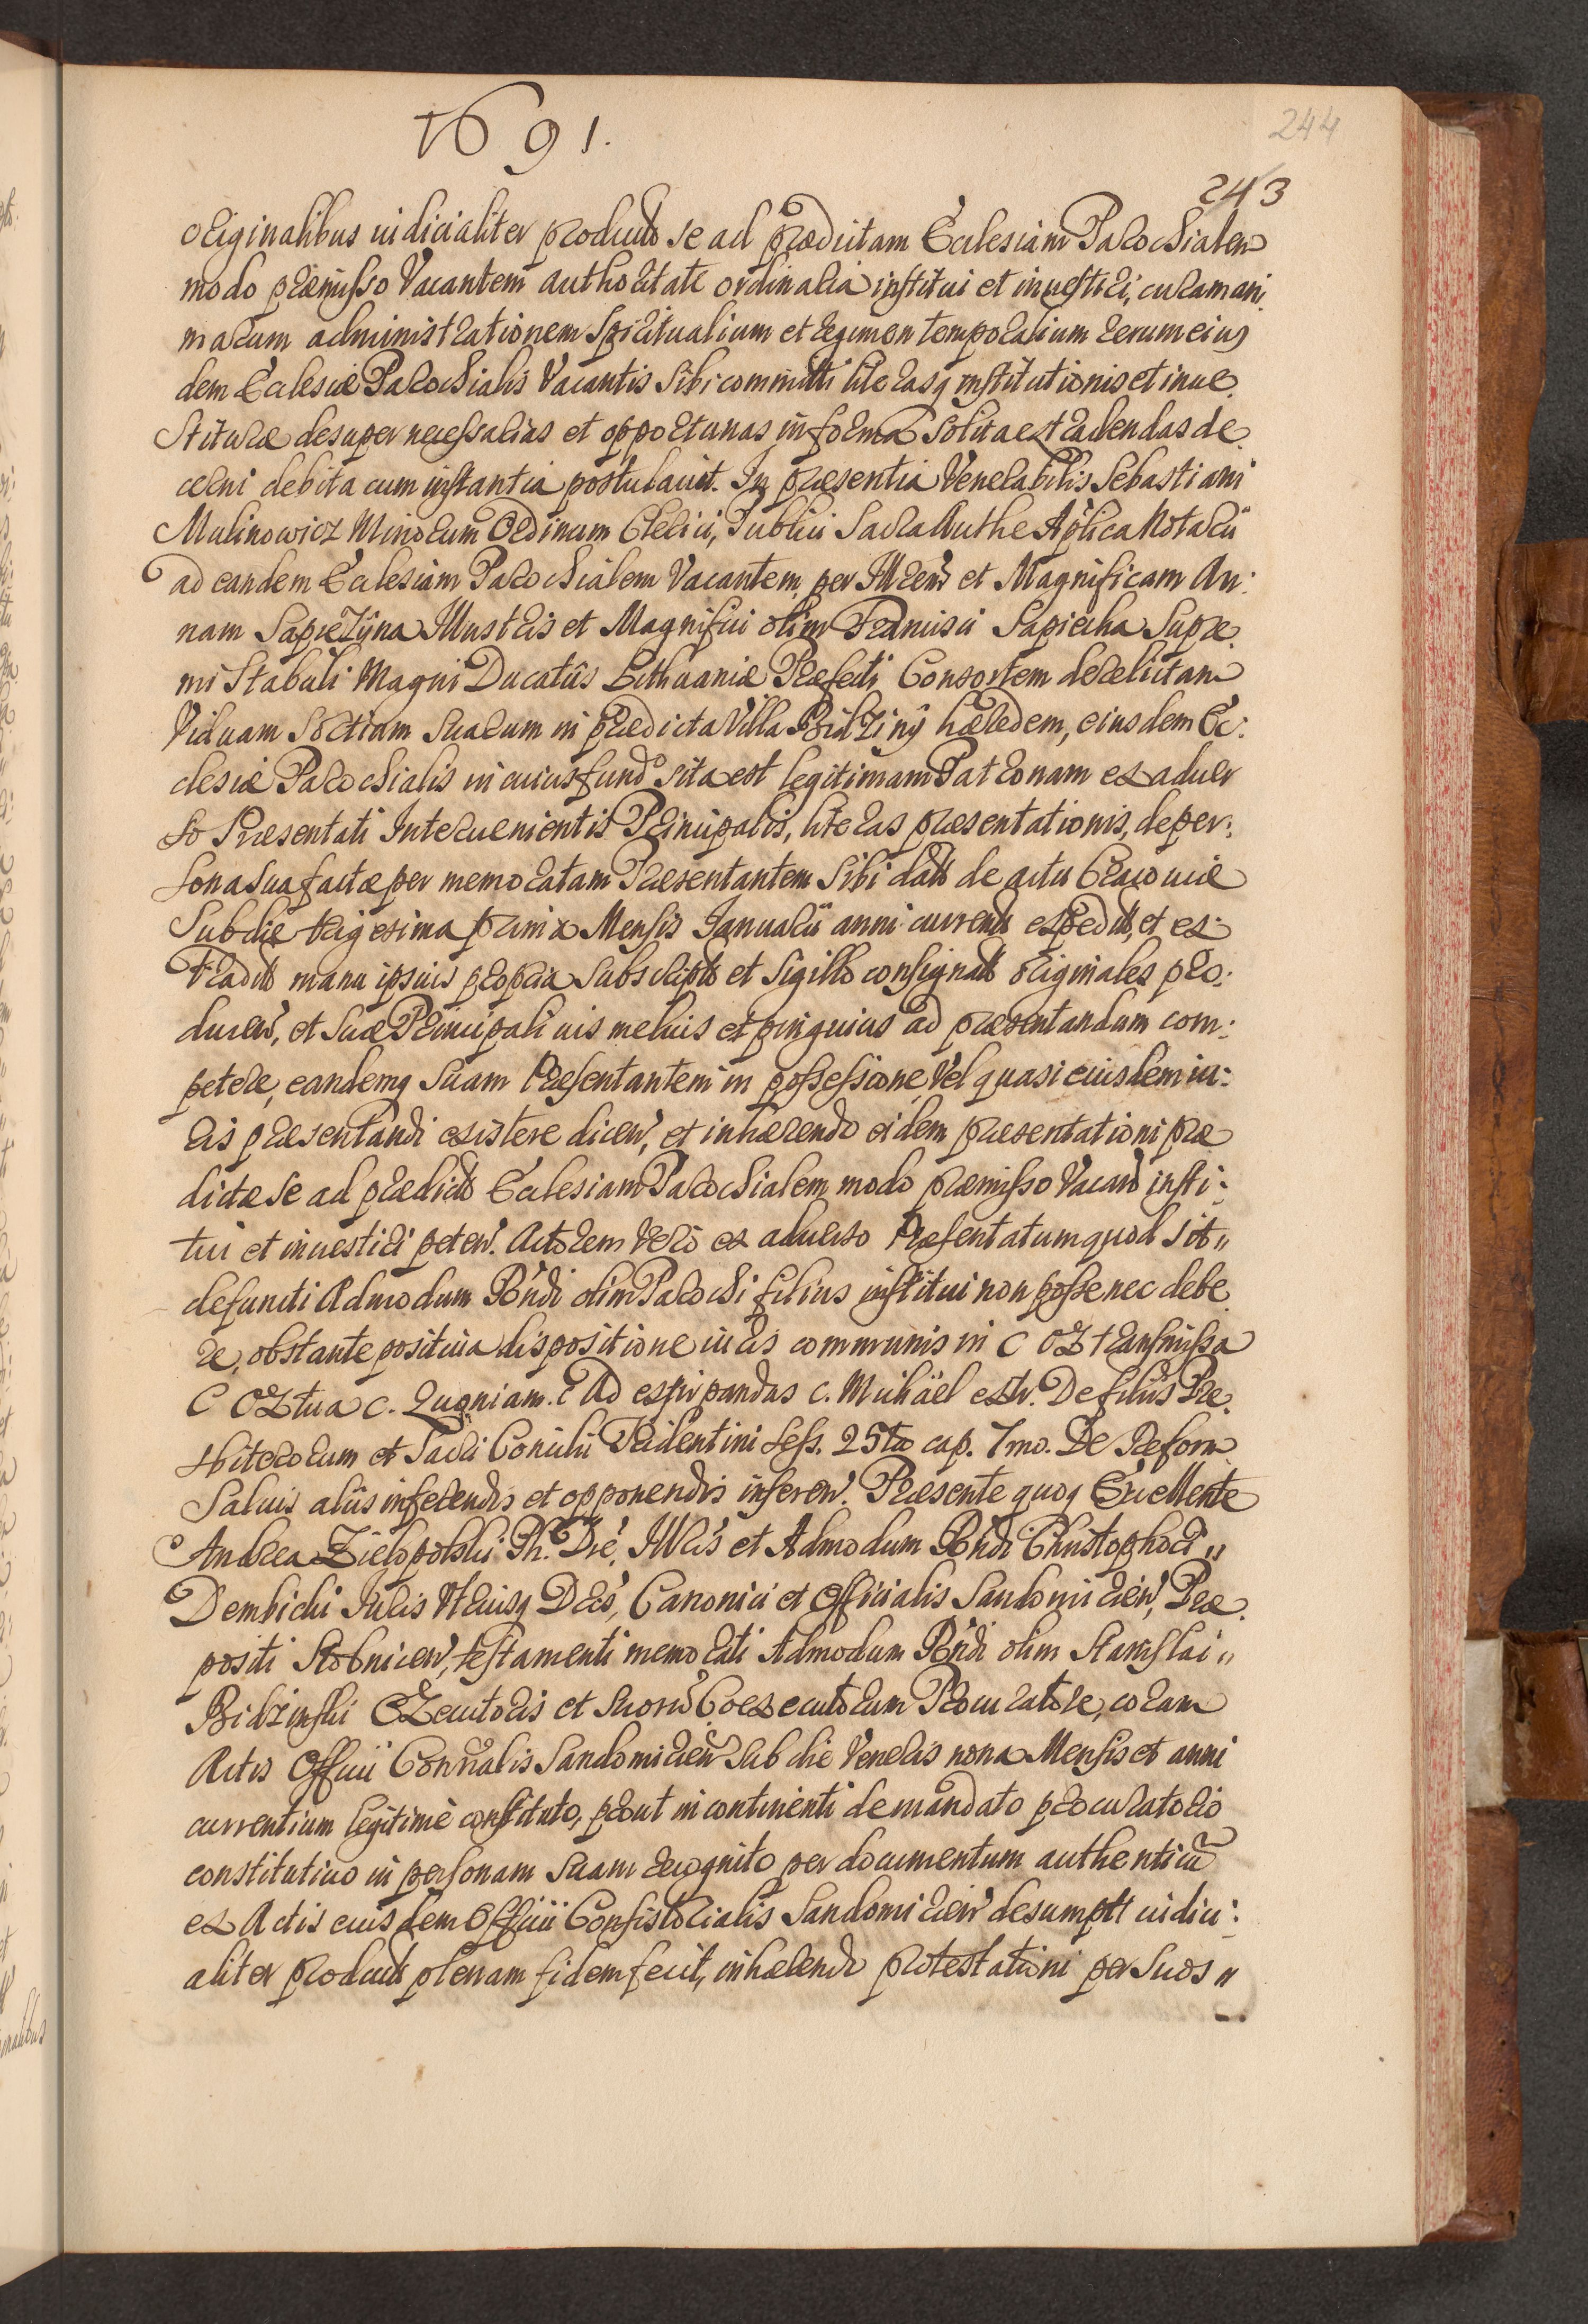 1691.
244
243
originalibus iudicialiter product̃ se ad prædictam Ecclesiam Parochialem
modo præmisso Vacantem authoritate ordinaria institui et inuestiri, curam ani,
marum administrationem Spiritualium et regimen temporalium rerum eius
dem Ecclesiæ Parochialis Vacantis Sibi committi literasq institutionis et inue.
Stituræ desuper necessarias et opportunas in forma Solita extradendas de.
cerni debita cum instantia postulauit. In præsentia Venerabilis Sebastiani
Malinowicz Minorum Ordinum Clerici, Publici Sacra Authe Aplica Notarii
ad eandem Ecclesiam Parochialem Vacantem, per Illrem et Magnificam An:
nam Sapieżyna Illustris et Magnifici olim Francisci Sapieha Supre.
mi Stabuli Magni Ducatûs Lithuaniæ Præfecti Consortem derelictam
Viduam Sortium Suarum in prædicta Villa Bidziny hæredem, eiusdem Ec:
clesiæ Parochialis in cuius fundo sita est legitimam Patronam ex aduer
so Præsentati Interuenientis Principalis, literas præsentationis, de per:
sona sua factæ per memoratam Præsentantem Sibi dat̃ de actu Cracouiæ
Sub die trigesima prima Mensis Ianuarii anni current̃ expedit̃, et ex:
tradit̃ manu ipsius propria Subscript̃ et Sigillo consignat̃ originales pro:
ducen̄, et Suæ Principali ius melius et pinguius ad præsentandum com:
petere, eandemq Suam Præsentantem in possessione, Vel quasi eiusdem iu:
ris præsentandi existere dicen̄, et inhærendo eidem præsentationi præ
dictæ se ad prædict̃ Ecclesiam Parochialem modo præmisso Vacan̄ insti:
tui et inuestiri peten̄. Actorem Verò ex aduerso Præsentatum quod sit "
defuncti Admodum Rndi olim Parochi filius institui non posse nec debe.
re, obstante positiua dispositione iuris communis in C Ex transmissa
C Ex tua c. Quoniam. C Ad extirpandas c. Michäel extr. De filiis Præ.
sbiterorum et Sacri Concilii Tridentini Sess. 25ta cap. 7mo. De Reform
Saluis aliis inferendis et opponendis inferen̄. Præsente quoq Excellente
Andrea Zielopolski Ph. Dre, Illris et Admodum Rndi Christophori "
Dembicki Iuris Vtriusq Dris, Canonici et Officialis Sandomirien̄, Præ.
positi Stobnicen̄, testamenti memorati Admodum Rndi olim Stanislai "
Bidzinski Executoris et Suorũ Coexecutorum Procuratore, coram
Actis Officii Connalis Sandomirien̄ Sub die Veneris nona Mensis et anni
currentium legitimè constituto, prout in continenti de mandato procuratorio
constitutiuo in personam Suam recognito per documentum authenticũ
ex Actis eiusdem Officii Consistorialis Sandomirien̄ desumptt iudici:
aliter product̃ plenam fidem fecit, inhærendo protestationi per Suos "